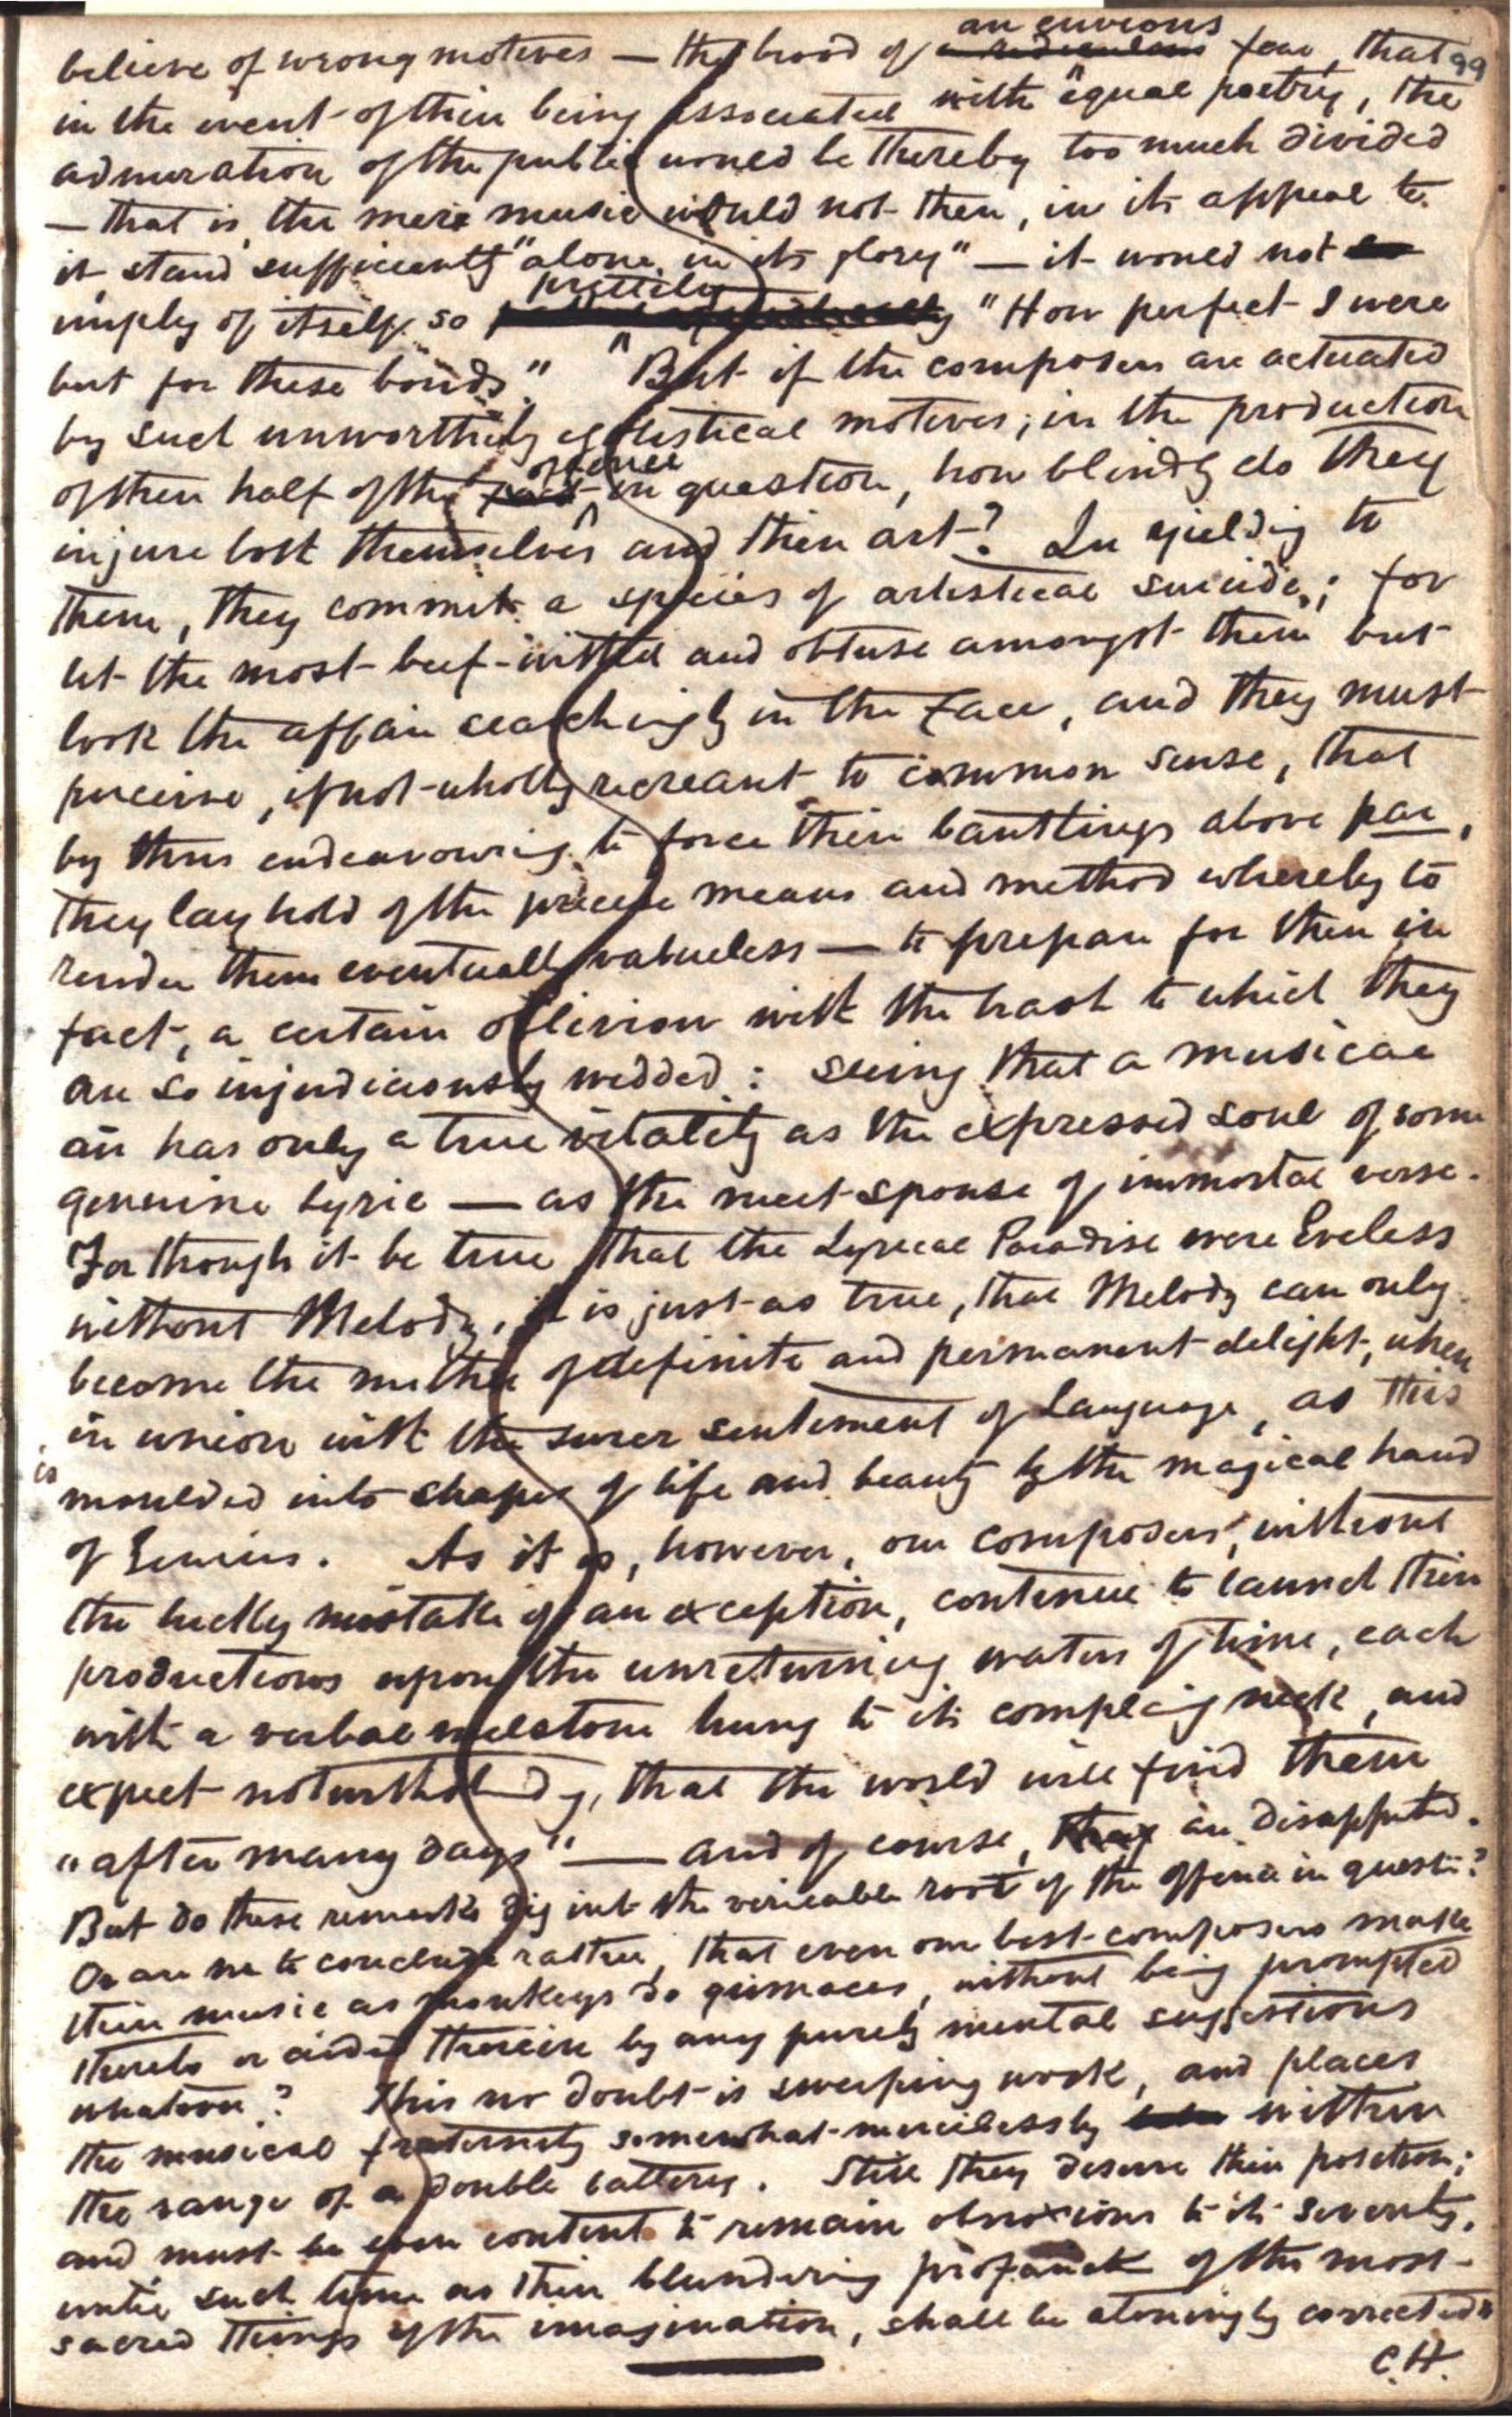 believe of wrong motives — the brood of an envious fear, that 99
in the event of their being associated with equal poetry, the
admiration of the public would be thereby too much divided
— that is, the mere music would not then, in its appeal to
it stand sufficiently "alone in its glory" — it would not
imply of itself so prettily "How perfect I were
but for these bonds." But if the composers are actuated
by such unworthily egotistical motives, in the production
of their half of the offence in question, how blindly do they
injure both themselves and their art? In yielding to
them, they commit a species of artistical suicide; for
let the most beef-witted and obtuse amongst them but
look the affair searchingly in the face, and they must
perceive, if not wholly recreant to common sense, that
by thus endeavouring to force their bantlings above par,
they lay hold of the precise means and method whereby to
render them eventually valueless — to prepare for them in
fact, a certain oblivion with the trash to which they
are so injudiciously wedded: seeing that a musical
air has only a true vitality as the expressed soul of some
genuine lyric — as the meet spouse of immortal verse.
For though it be true that the Lyrical Paradise were Eveless
without Melody, it is just as true, that Melody can only
become the mother of definite and permanent delight, when
in union with the surer sentiment of Language, as this
is moulded into shapes of life and beauty by the magical hand
of Genius. As it is, however, our composers, without
the lucky mistake of an exception, continue to launch their
productions upon the unreturning waters of time, each
with a verbal milestone hung to its complaining neck, and
expect notwithstandg, that the world will find them
"after many days" — and of course, they are disappointed.
But do these remarks dig into the veritable root of the offence in questn?
Or are we to conclude rather, that even our best composers make
their music as monkeys do grimaces, without being prompted
thereto or aided therein by any purely mental suggestions
whatever? This no doubt is sweeping work, and places
the musical fraternity somewhat mercilessly within
the range of a double battery. Still they deserve their position;
and must be even content to remain obnoxious to its severity,
until such time as their blundering of the most
sacred things of the imagination, shall be atoningly corrected"
C.H.